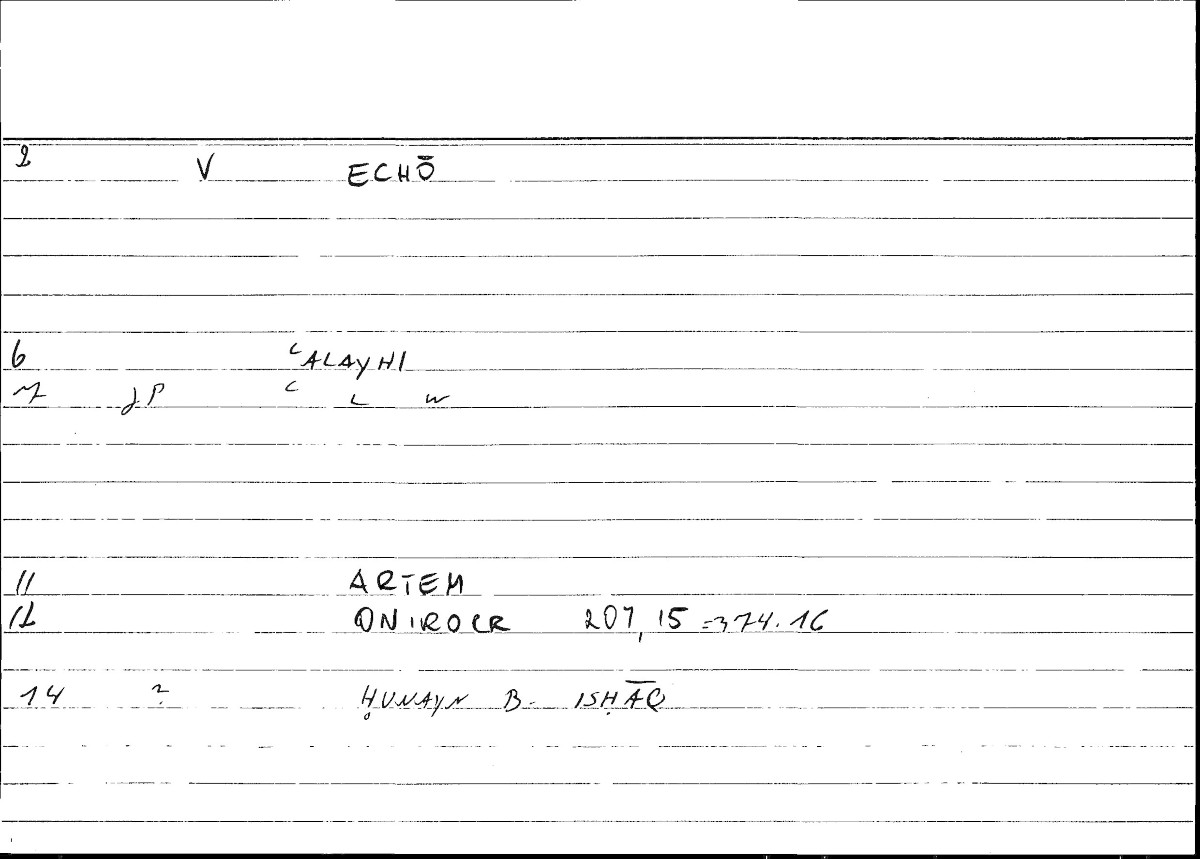 2 V ECHŌ
6 ʿALAYHI
7 JP ʿ L W
11 ARTEM
12 ONIROCR 207,15 = 374.16
14 ? ḤUNAYN B. ISḤĀQ